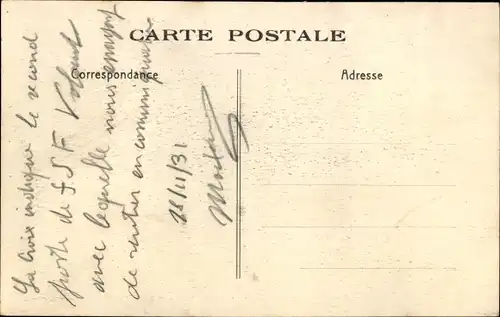 CARTE POSTALE
Correspondance
Adresse
La croix indique le second
poste de T S F Volant
avec lequel nous essayons
de rentrer en communication
28/11/31